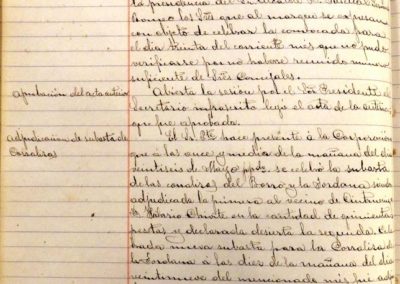 la presidencia del Sr. Alcalde D.
Romeo los Sres que al margen se expresan
con objeto de celebrar la convocada para
el dia treinta del corriente mes que no pudo
verificarse por no haberse reunido número
suficiente de Sres Concejales.
aprobación del acta anterior
Abierta la sesion por el Sr. Presidente el
Secretario infrascrito legó el acta de la anterior
que fue aprobada.
adjudicacion de subasta de
Corralizas
El Sr. Pte hace presente á la Corporación
que á las once y media de la mañana del dia
veintiseis de Mayo ppdo. se celebró la subasta
de las corralizas del Borro y la Jordana siendo
adjudicada la primera al vecino de Cintruenigo
D. Chivite en la cantidad de quinientas
pesetas y declarada desierta la segunda. Cele
brada nueva subasta para la Corraliza de
la Jordana á las diez de la mañana del dia
veintinueve del mencionado mes fué adju